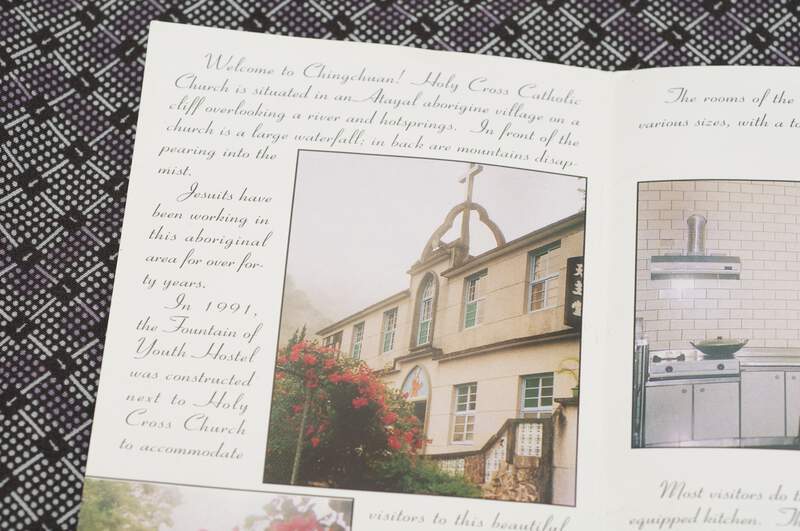 Welcome to Chingchuan! Holy Cross Catholic
Church is situated in an Atayal aborigine village on a
cliff overlooking a river and hotsprings. In front of the
church is a large waterfall; in back are mountains disap-
pearing into the
mist.
Jesuits have
been working in
this aboriginal
area for over for-
ty years.
In 1991,
the Fountain of
Youth Hostel
was constructed
next to Holy
Cross Church
to accommodate
visitors to this beautiful
天主堂
The rooms of the
various sizes, with a
Most visitors do
equipped kitchen.